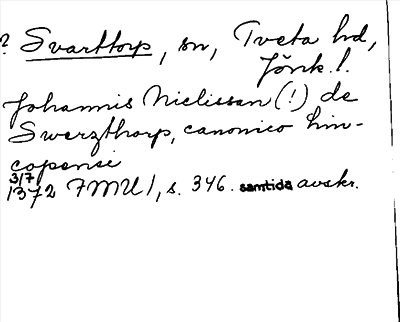 ? Svarttorp, sn, Tveta hd,
Jönk. l.
Johannis Niclissan (!) de
Swerzthorp, canonico lin-
copensi
3/7
1372 FMU 1, s. 346. samtida avskr.